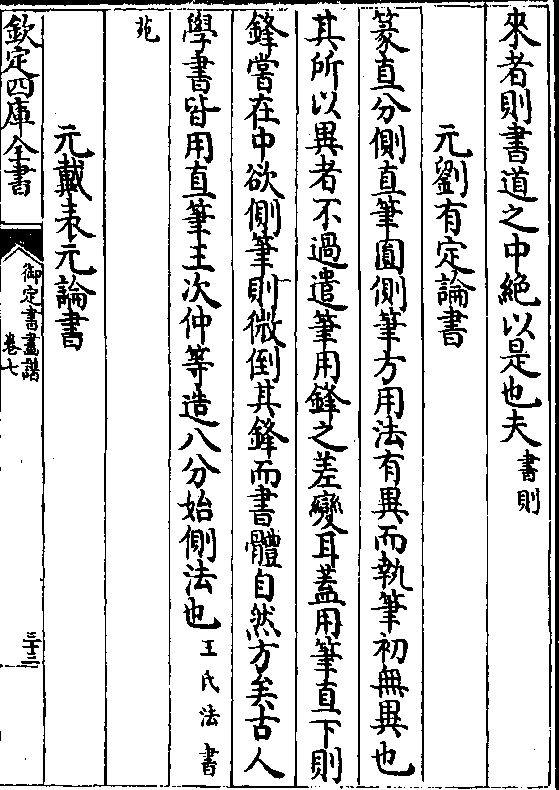 來者則書道之中絶以是也夫書則
元劉有定論書
篆直分側直筆圓側筆方用法有異而執筆初無異也
其所以異者不過遣筆用鋒之差變耳蓋用筆直下則
鋒嘗在中欲側筆則微倒其鋒而書體自然方矣古人
學書皆用直筆王次仲等造八分始側法也王氏法書
苑
元戴表元論書
欽定四庫全書
御定書畫譜
卷七
三十二